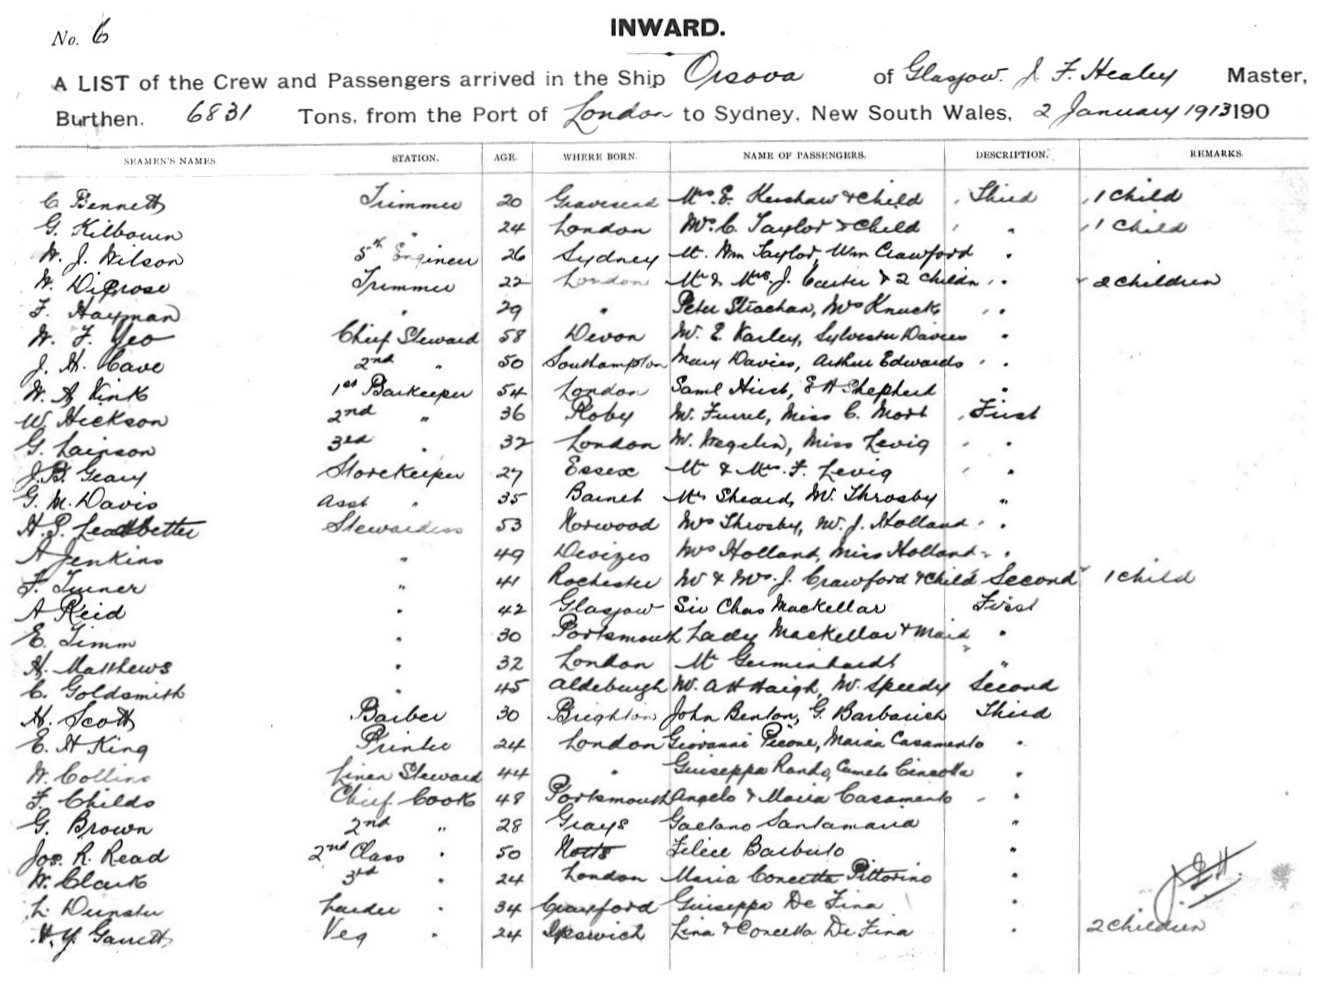 No. 6
INWARD.
A LIST of the Crew and Passengers arrived in the Ship Orsova of Glasgow. J. F. Healey Master,
Burthen. 6831 Tons, from the Port of London to Sydney, New South Wales, 2 January 1913 190
SEAMEN'S NAMES. STATION. AGE. WHERE BORN. NAME OF PASSENGERS. DESCRIPTION. REMARKS.
C Bennett Trimmer 20 Gravesend Mrs. E. Kershaw & Child Third 1 Child
G. Kilbourn " 24 London Mrs. C. Taylor & Child " 1 Child
W. J. Wilson 5th Engineer 26 Sydney Mr. Wm Taylor, Wm Crawford "
W. Diprose Trimmer 22 London Mr & Mrs. J. Carter & 2 Childn " 2 Children
F. Hayman " 29 " Peter Strachan, Mrs "
W. F. Yeo Chief Steward 58 Devon E. Varley, Sylvester Davies "
J. H. Cave 2nd " 50 Southampton Mary Davies, Arthur Edwards "
W. A. 1st Barkeeper 54 London Saml Hirst, E H Shepherd "
W. Hickson 2nd " 36 Roby Miss C. Mort First
G. 3rd " 32 London Miss Levig "
J. B. Geary Storekeeper 27 Essex Mr & Mrs. F. Levig "
G. M. Davis Asst " 35 Barnet Sheard, Mr. Throsby "
H. P. Leadbetter Stewardess 53 Norwood Mrs Throsby, Mr. J. Holland "
A Jenkins " 49 Devizes Mrs Holland, Miss Holland "
F. Turner " 41 Rochester Mr & Mrs. J. Crawford & Child Second 1 Child
A Reid " 42 Glasgow Sir Chas Mackellar First
E. Timm " 30 Portsmouth Lady Mackellar & Maid "
H. Matthews " 32 London Mr "
C. Goldsmith " 45 Aldeburgh Mr. A H Haigh, Mr. Speedy Second
H. Scott Barber 30 Brighton John Benton, G. Barbarich Third
E. H King Printer 24 London Giovanni Picone, Maria Casamento "
W. Collins Linen Steward 44 " Giuseppa Rando, Camelo Cincotta "
F. Childs Chief Cook 48 Portsmouth Angelo & Maria Casamento "
G. Brown 2nd " 28 Grays Gaetano Santamaria "
Jos. R. Read 2nd Class " 50 Notts Felice Barbuto "
W. Clark 3rd " 24 London Maria Concetta Pittorino "
L. Dunster Larder " 34 Crawford Giuseppa De Fina "
H. Y. Garrett Veg " 24 Ipswich Lina & Concetta De Fina " 2 Children